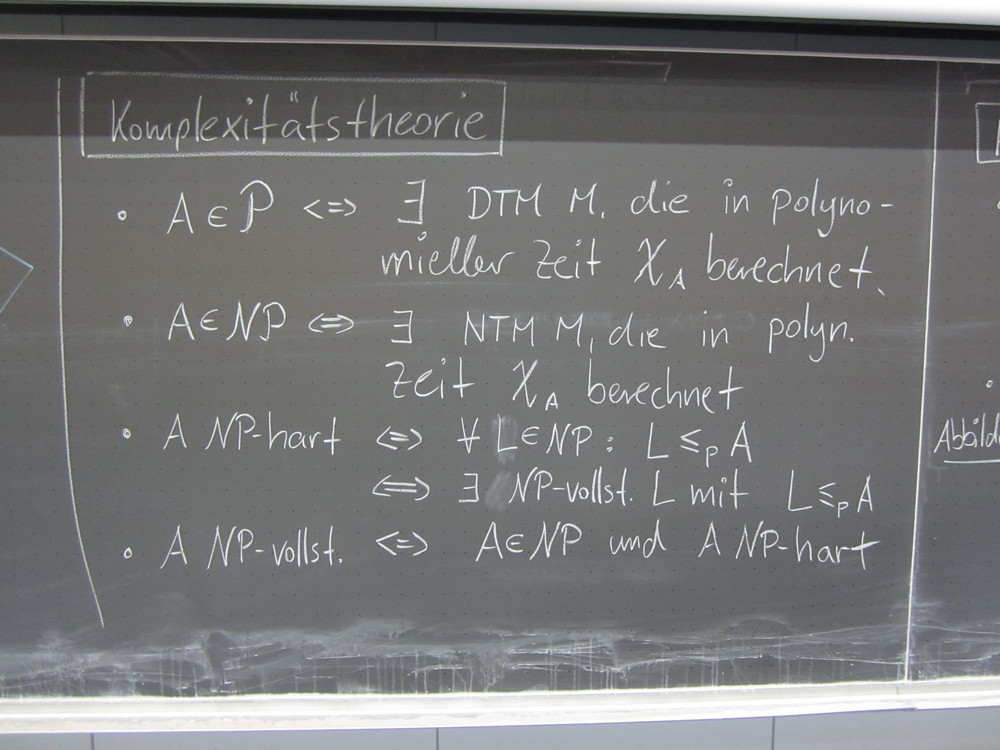 Komplexitätstheorie
• A ∈ P <=> ∃ DTM M, die in polyno-
mieller Zeit χ_A berechnet.
• A ∈ NP <=> ∃ NTM M, die in polyn.
Zeit χ_A berechnet
• A NP-hart <=> ∀ L ∈ NP : L ≤_p A
<=> ∃ NP-vollst. L mit L ≤_p A
• A NP-vollst. <=> A ∈ NP und A NP-hart
Abbild